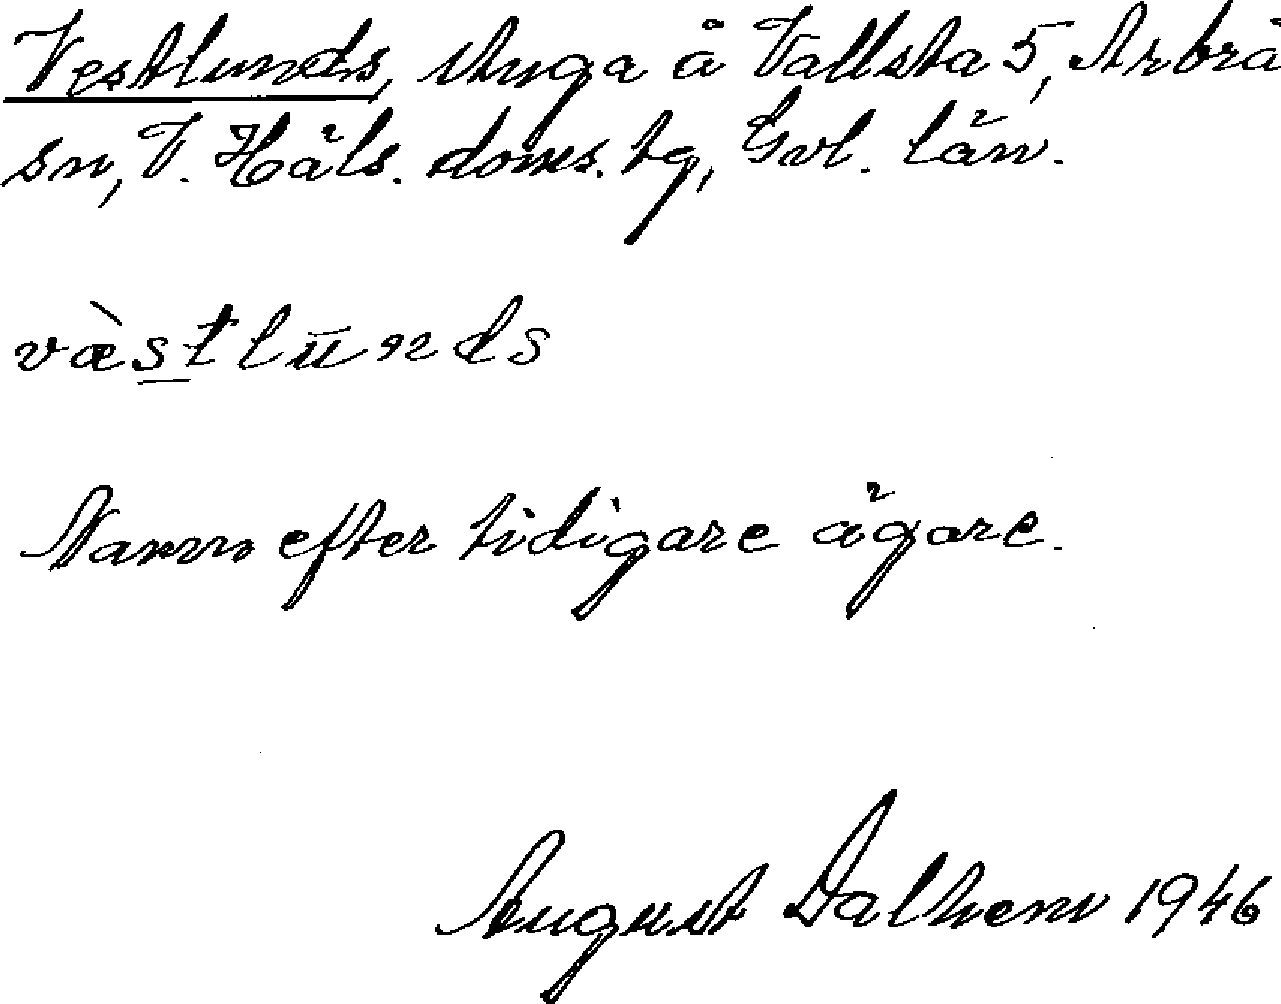 Vestlunds, stuga å Vallsta 5, Arbrå
sn, V. Häls. doms. tg, Gvl. län.
væ̀stlūnds
Namn efter tidigare ägare.
August Dalhem 1946